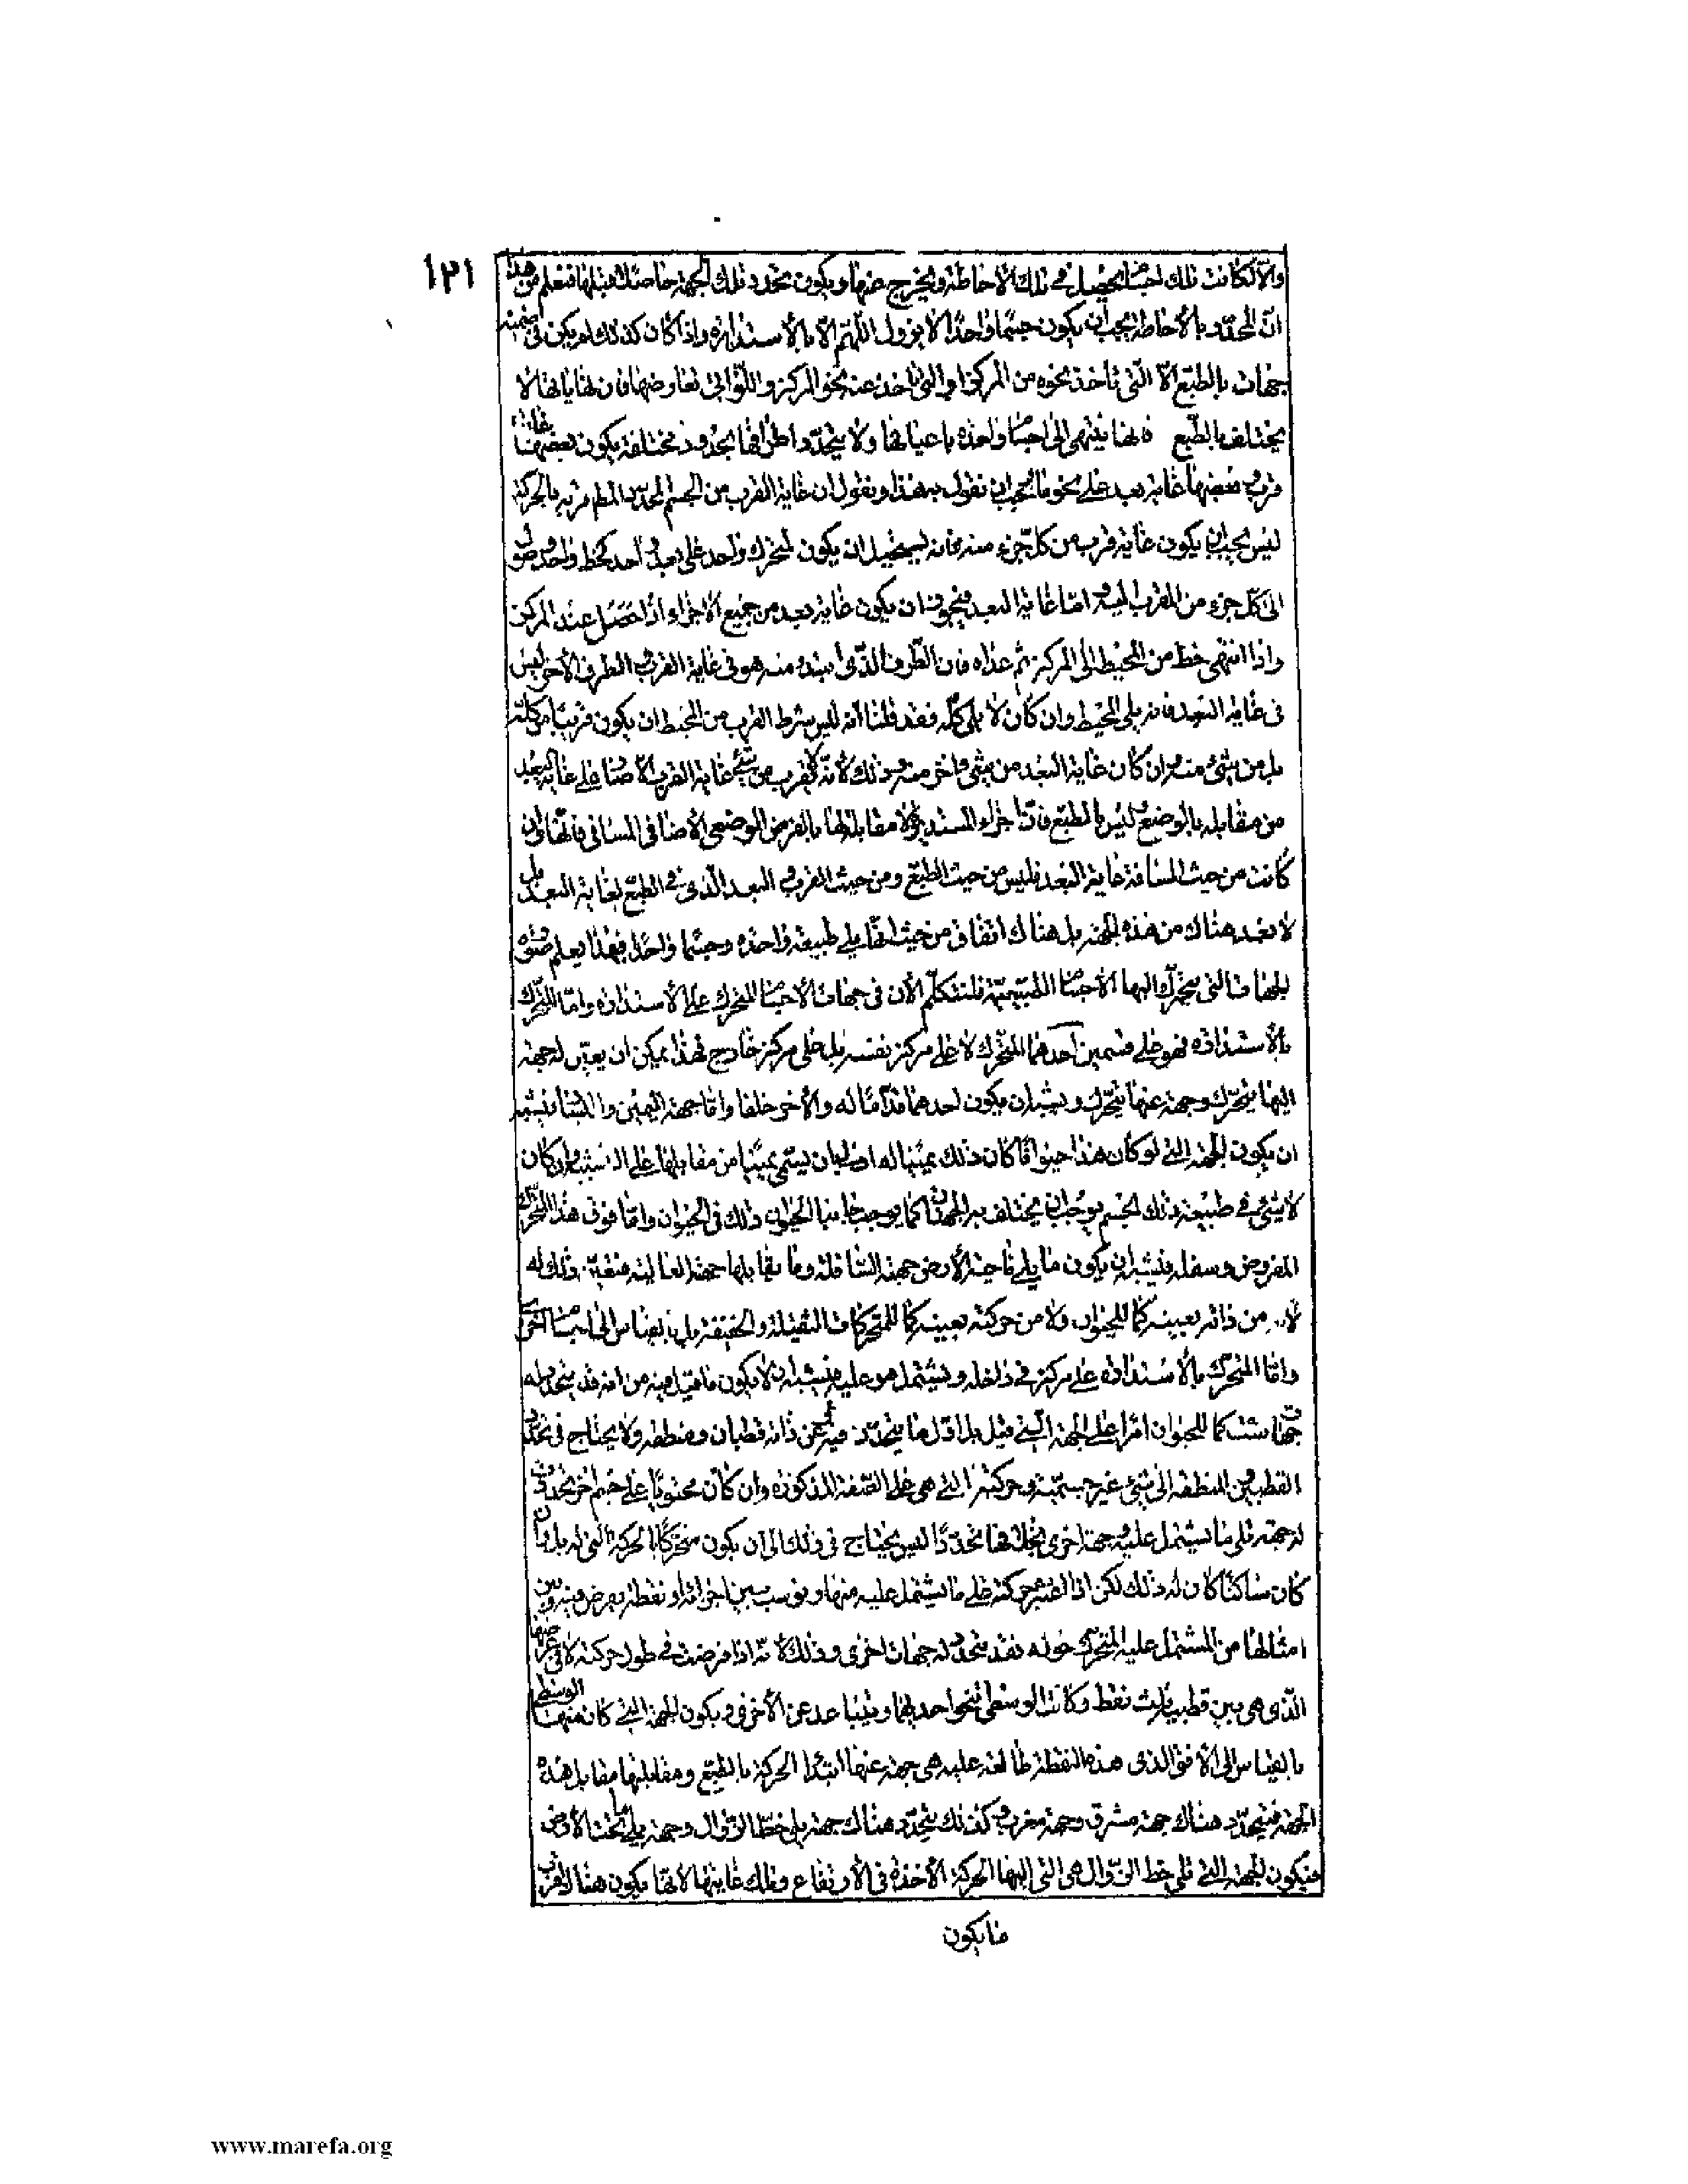 ١٣١
والا لكانت تلك احيانا يحصل في تلك الاحاطة ويخرج عنها ويكون تحدد تلك الجهة حاصلة قبلها فنعلم من هذا
ان المحدد بالاحاطة يجب ان يكون جسما واحدا لا يزول اللهم الا بالاستدارة واذا كان كذلك لم يكن في ضمنه
جهات بالطبع الا التي تاخذ نحوه من المركز او التي تاخذ عنه نحو المركز واللواتي تعارضها فان نهاياتها لا
يختلف بالطبع لانها ينتهي الى واحدة باعيانها ولا يتحدد اطرافها بحدود مختلفة يكون بعضها غاية
قرب وبعضها غاية بعد على نحو ما يجب ان نقول بعد هذا ونقول ان غاية القرب من الجسم المحدد المطلوب قربه بالحركة
ليس يجب ان يكون غاية قرب من كل جزء منه فانه يستحيل ان يكون لمتحرك واحد على بعد واحد كخط واحد وصول
الى كل جزء من المقرب اليه واما غاية البعد فيجوز ان يكون غاية بعد من جميع الاجزاء اذا حصل عند المركز
واذا انتهى خط من المحيط الى المركز ثم عداه فان الطرف الذي ابتدء منه هو في غاية القرب والطرف الاخر ليس
في غاية البعد فانه يلي المحيط وان كان لا يلي كله فقد قلنا انه ليس شرط القرب من المحيط ان يكون قريبا من كله
بل من شيء منه وان كان غاية البعد من شيء اخر منه وذلك لانه لا يقرب من شيء غاية القرب الا صار على غاية البعد
من مقابله بالوضع ليس بالطبع فان اجزاء المستدير لا مقابلة لها بالعرض الوضعي الاضافي المسافي فانها وان
كانت من حيث المسافة غاية البعد فليس من حيث الطبع ومن حيث القرب والبعد الذي في الطبع لغاية البعد بل
لا بعد هناك من هذه الجهة بل هناك اتفاق من حيث انها يلي طبيعة واحدة وجسما واحدا فبهذا يعلم صفة
الجهات التي يتحرك اليها الاجسام الطبيعية فلنتكلم الان في جهات الاجسام المتحركة على الاستدارة واما المتحرك
بالاستدارة فهو على قسمين احدهما المتحرك لا على مركز نفسه بل على مركز خارج فهذا يمكن ان يعين له جهة
اليها يتحرك وجهة عنها يتحرك ويشبه ان يكون احدهما قداما له والاخر خلفا واما جهة اليمين واليسار فيشبه
ان يكون الجهة التي لو كان هذا حيوانا كان ذلك يمينا له اولى بان يسمى يمينا من مقابلها على التشبيه وان كان
لا شيء في طبيعة ذلك الجسم يوجب ان يختلف به الجهتان كما يوجب جانبا الحيوان ذلك في الحيوان واما فوق هذا المتحرك
المفروض وسفله فيشبه ان يكون ما يلي ناحية الارض جهة السافلة وما يقابلها جهة العالية وذلك له
لا من ذاته بعينه كما للحيوان ولا من حركته بعينه كما للمتحركات الثقيلة والخفيفة بل بالقياس الى اجسام اخرى
واما المتحرك بالاستدارة على مركز في داخله ويشتمل هو عليه فيشبه ان لا يكون ما قيل فيه من انه قد يتحدد له
جهات ست كما للحيوان امرا على الجهة التي قيل بل اول ما يتحدد فيه عن ذاته قطبان ومنطقة ولا يحتاج في تحدد
القطبين والمنطقة الى شيء غير جسميته وحركته التي هي على الصفة المذكورة وان كان محتويا على جسم اخر يتحدد
له جهة تلي ما يشتمل عليه وجهة اخرى بخلافها تحددا ليس يحتاج في ذلك الى ان يكون متحركا بالحركة التي له بل وان
كان ساكنا كان له ذلك لكن اذا اعتبر حركته على ما يشتمل عليه منها ونوسب بين اجزائه او نقطة يعرض فيه وبين
امثالها من المشتمل عليه المتحرك حوله فقد يتحدد له جهات اخرى وذلك لانه اذا فرضت في طول حركته لا في عرضها
الذي هي بين قطبيه ثلث نقط وكانت الوسطى تنحو احديهما ويتباعد عن الاخرى ويكون الجهة التي كان منها الوسطى
بالقياس الى الافق الذي هذه النقطة طالعة عليه هي جهة عنها ابتداء الحركة بالطبع ومقابلتها مقابل هذه
الجهة فيتحدد هناك جهة مشرق وجهة مغرب وكذلك يتحدد هناك جهة يلي خط الزوال وجهة يلي ما تحت الارض
فيكون الجهة التي تلي خط الزوال هي التي اليها الحركة الاخذة في الارتفاع وتلك غايتها لانها يكون هناك اقرب
ما يكون
www.marefa.org